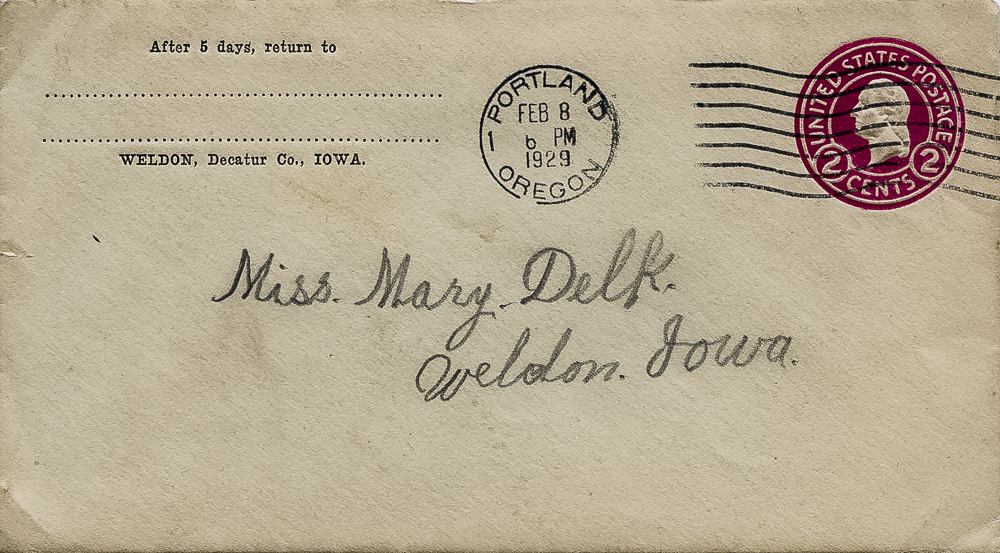 After 5 days, return to
WELDON, Decatur Co., IOWA.
PORTLAND
FEB 8
1 6 PM
1929
OREGON
UNITED STATES POSTAGE
2 2
CENTS
Miss. Mary. Delk.
Weldon. Iowa.